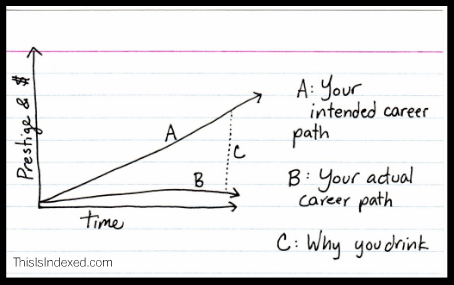 Prestige & $
A
B
C
time
A: Your
intended career
path
B: Your actual
career path
C: Why you drink
ThisIsIndexed.com